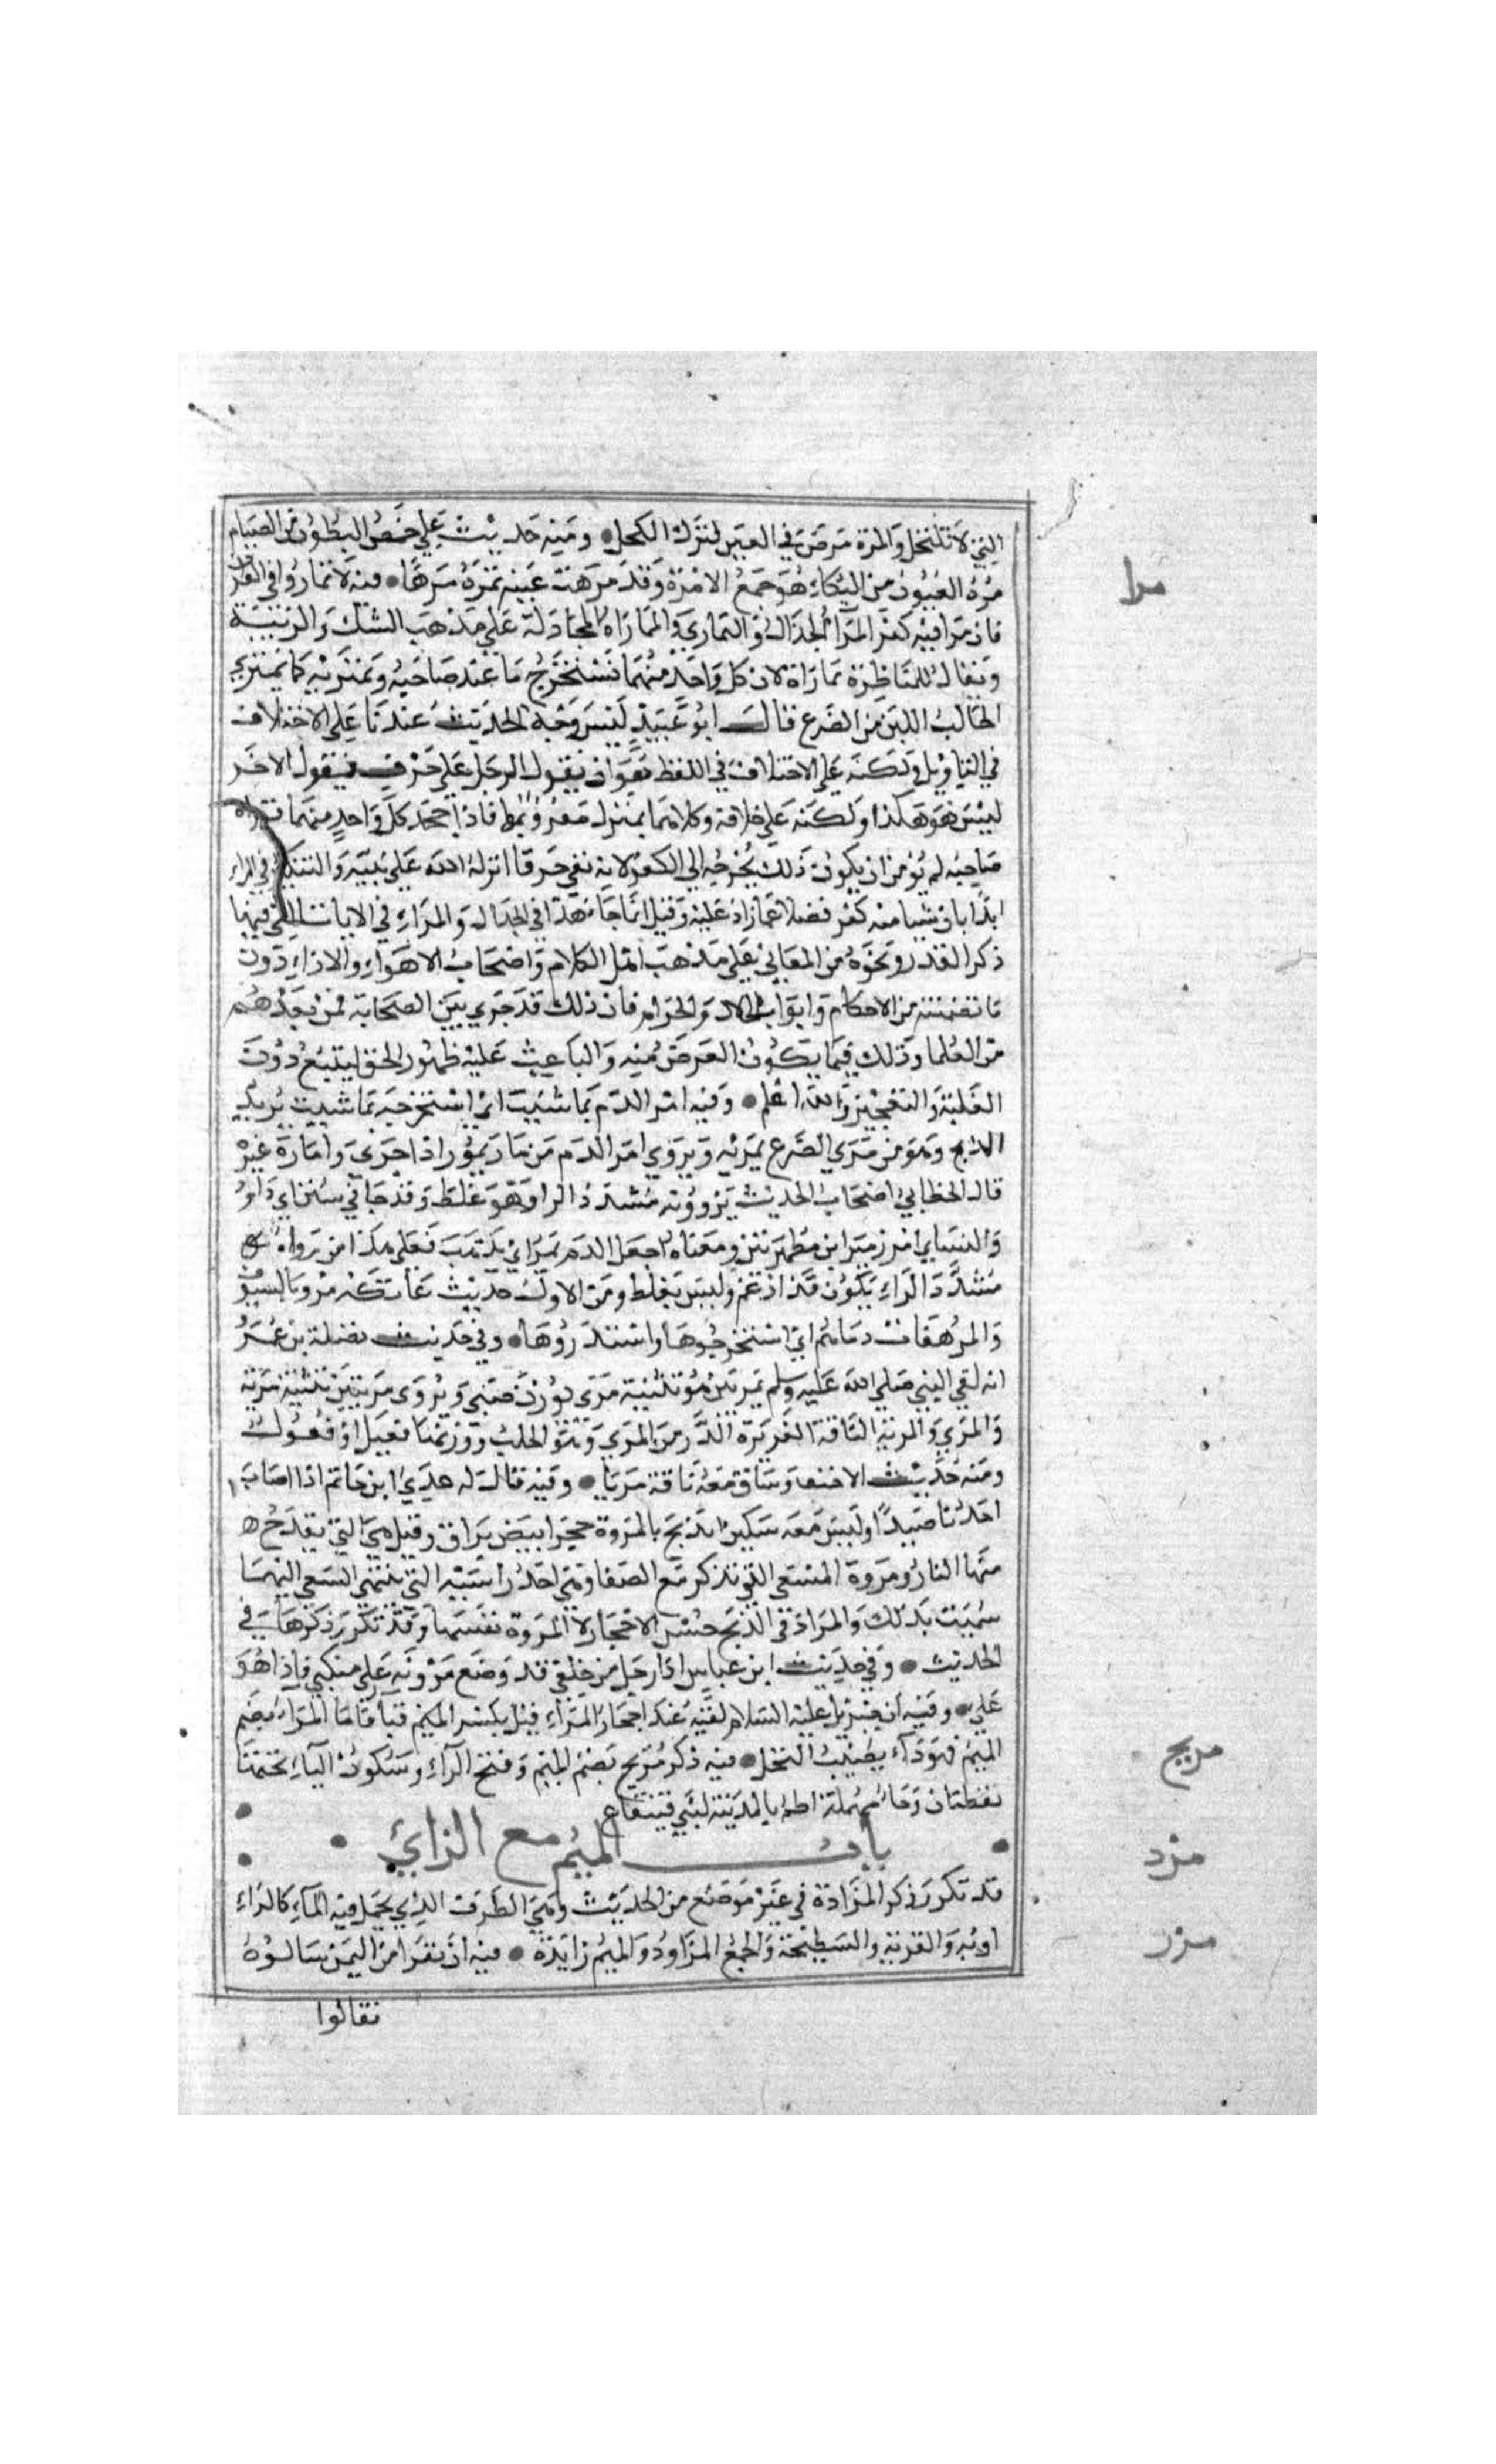 التي لا تكتحل والمره مرض في العين لترك الكحل ومنه حديث علي خمص البطون من الصيام
مره العيون من البكاء هو جمع الامره وقد مرهت عينه تمره مرها منه لا تماروا في القرآن
مرا
فان مرا فيه كفر المرآ الجدال والتماري والمماراه المجادلة على مذهب الشك والريبة
ويقال للمناظرة مماراة لان كل واحد منهما يستخرج ما عند صاحبه ويمتريه كما يمتري
الحالب اللبن من الضرع قال ابو عبيد ليس وجه الحديث عندنا على الاختلاف
في التاويل ولكنه على الاختلاف في اللفظ وهو ان يقول الرجل على حرف فيقول الاخر
ليس هو هكذا ولكنه على خلافه وكلاهما منزل مقرو بهما فاذا جحد كل واحد منهما قراه
صاحبه لم يؤمن ان يكون ذلك يخرجه الى الكفر لانه نفي حرفا انزله الله على نبيه والتنكير في المراء
ايذانا بان شيا منه كفر فضلا عما زاد عليه وقيل انما جاء هذا في الجدال والمراء في الايات التي فيها
ذكر القدر ونحوه من المعاني على مذهب اهل الكلام واصحاب الاهواء والاراء دون
ما تضمنته من الاحكام وابواب الحلال والحرام فان ذلك قد جري بين الصحابة فمن بعدهم
من العلما وذلك فيما يكون الغرض منه والباعث عليه ظهور الحق ليتبع دون
الغلبة والتعجيز والله اعلم وفيه امر الدم بما شيت اي استخرجه بما شيت يريد
الذبح وهو من مري الضرع يمريه ويروي امر الدم من مار يمور اذا جري واماره غيره
قال الخطابي اصحاب الحديث يروونه مشدد الرا وهو غلط وقد جا في سنن ابي داود
والنساي امرر براين مظهرتين ومعناه اجعل الدم يمر اي يذهب فعلى هذا من رواه
مشدد الراء يكون قد ادغم وليس بغلط ومن الاول حديث عاتكه مروا بالسيوف
والمرهفات دماهم اي استخرجوها واستدروها وفي حديث نضلة بن عمرو
انه لقي النبي صلي الله عليه وسلم بمريين هو تثنية مري بوزن صبي ويروى مريتين تثنية مرية
والمري والمرية الناقة الغزيرة الدر من المري وهو الحلب ووزنهما فعيل او فعول
ومنه حديث الاحنف وساق معه ناقة مريا وفيه قال له عدي ابن حاتم اذا اصاب
احدنا صيدا وليس معه سكين انذبح بالمروة حجر ابيض براق وقيل هي التي يقدح
منها النار ومروة المسعى التي تذكر مع الصفا وهي احد راسيه التي ينتهي السعي اليهما
سميت بذلك والمراد في الذبح جنس الاحجار لا المروة نفسها وقد تكرر ذكرها في
الحديث وفي حديث ابن عباس اذا رجل من خلفي قد وضع مروته على منكبي فاذا هو
علي وفيه ان جبريل عليه السلام لقيه عند احجار المراء قيل بكسر الميم قبا فاما المراء بضم
الميم فهو داء يصيب النخل فيه ذكر مريح بضم الميم وفتح الراء وسكون الياء تحتها
مريح
نقطتان وحاء مهملة اطم بالمدينة لبني قينقاع
باب الميم مع الزاي
مزد
قد تكرر ذكر المزادة في غير موضع من الحديث وهي الظرف الذي يحمل فيه الماء كالراء
اويه والقربه والسطيحة والجمع المزاود والميم زايدة فيه ان نفرا من اليمن سالوه
مزر
فقالوا